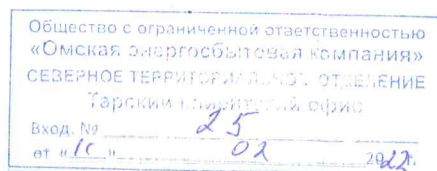 Общество с ограниченной ответственностью
«Омская энергосбытовая компания»
СЕВЕРНОЕ ТЕРРИТОРИАЛЬНОЕ ОТДЕЛЕНИЕ
Тарский клиентский офис
Вход. № 25
от « » 02 2022 г.